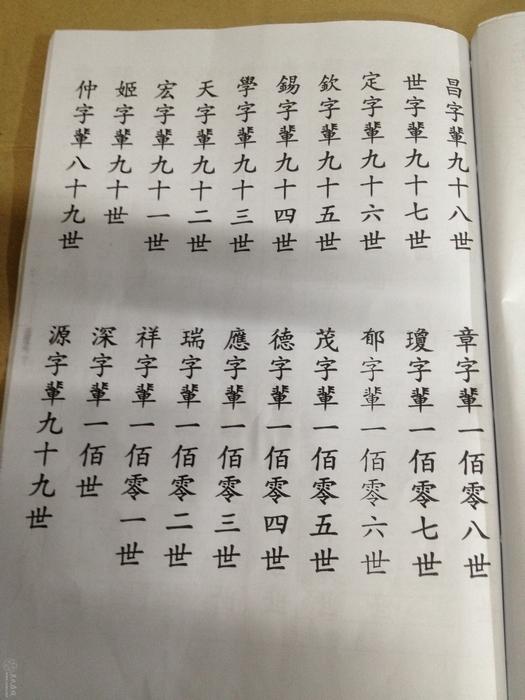 仲字輩八十九世
姬字輩九十世
宏字輩九十一世
天字輩九十二世
學字輩九十三世
錫字輩九十四世
欽字輩九十五世
定字輩九十六世
世字輩九十七世
昌字輩九十八世
源字輩九十九世
深字輩一佰世
祥字輩一佰零一世
瑞字輩一佰零二世
應字輩一佰零三世
德字輩一佰零四世
茂字輩一佰零五世
郁字輩一佰零六世
瓊字輩一佰零七世
章字輩一佰零八世